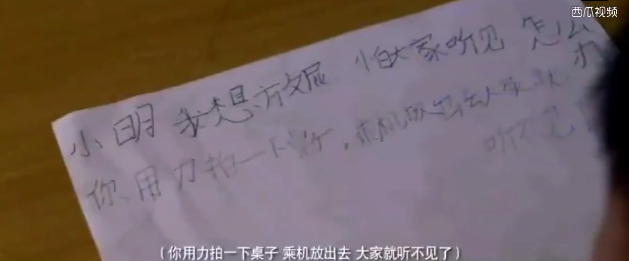 西瓜视频
小明 我想放屁 怕大家听见 怎么办
你、用力拍一下桌子,乘机放出去大家就
听不见
(你用力拍一下桌子 乘机放出去 大家就听不见了)